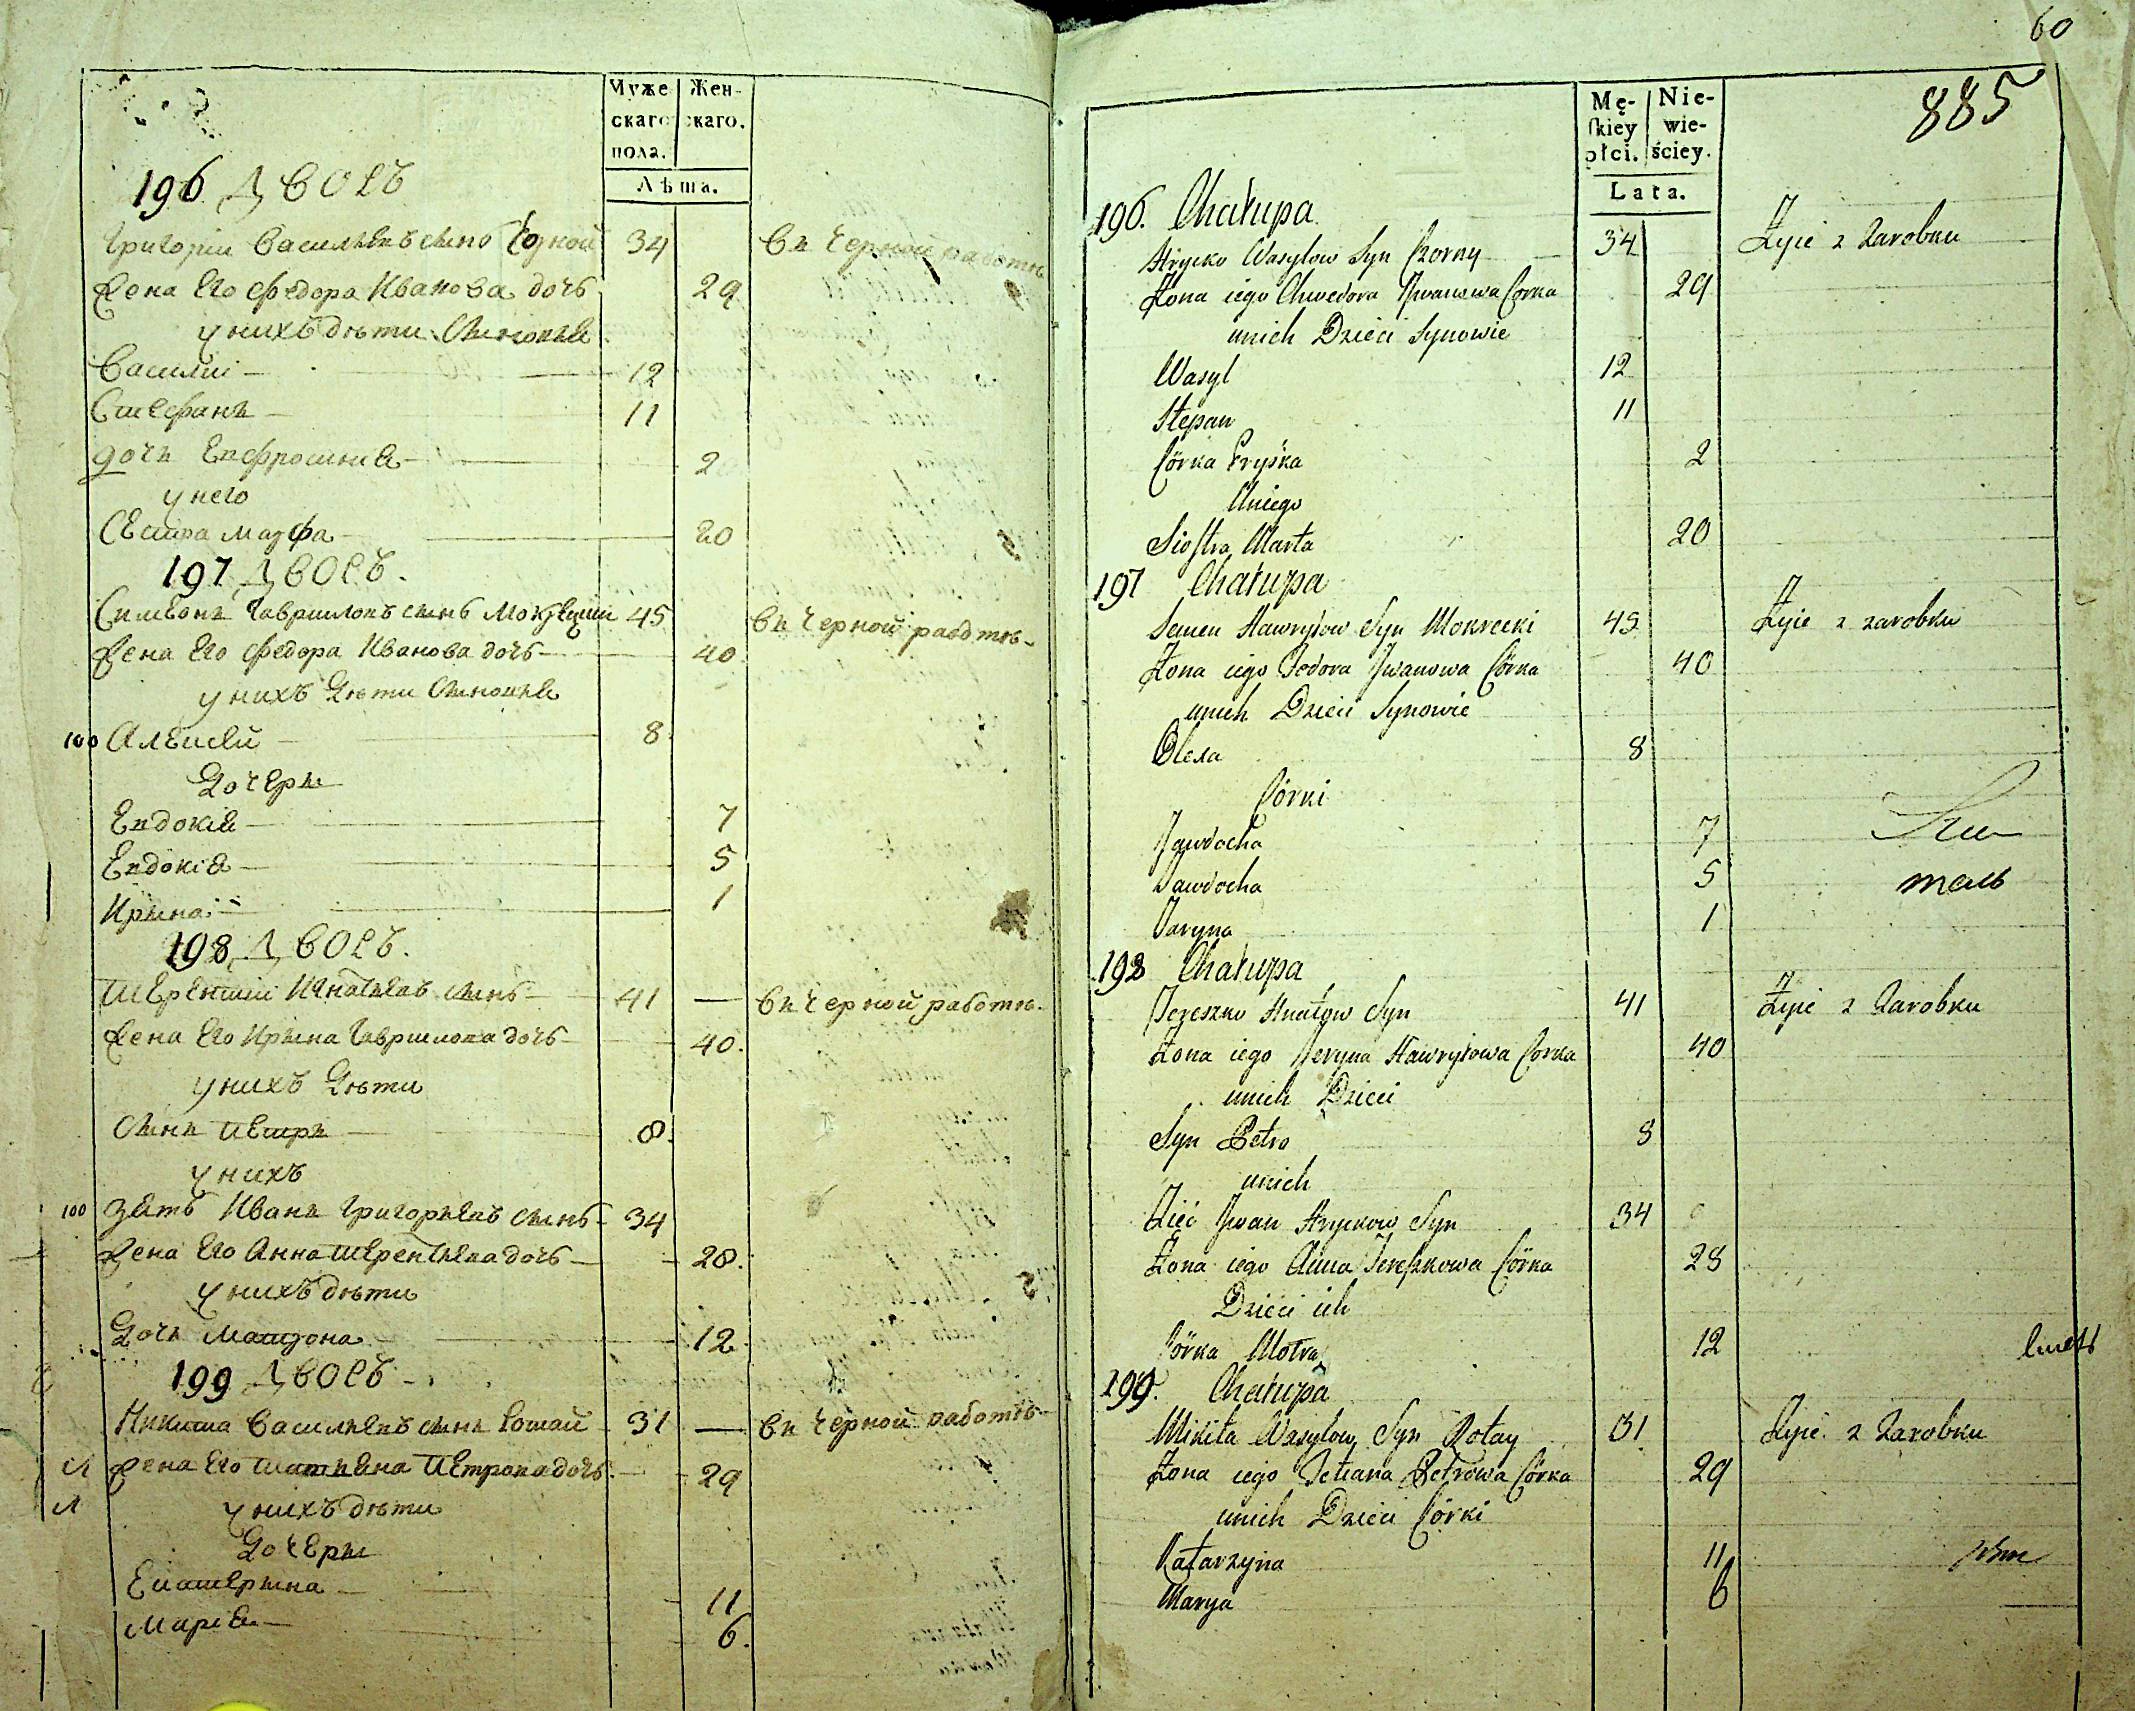 Мужескаго пола. Женскаго.
Лѣта.
196 Дворъ
Григорій Васильевъ сынъ Чорной 34 въ черной работѣ
Жена Его Федора Иванова дочь 29
у нихъ дѣти Сыновья
Василій 12
Стефанъ 11
дочь Евфросинія 2
у него
Сестра Марфа 20
197 Дворъ.
Симеонъ Гавриловъ сынъ Мокрецкій 45 въ черной работѣ
Жена Его Федора Иванова дочь 40
у нихъ Дѣти Сыновья
100 Алексей 8
Дочери
Евдокія 7
Евдокія 5
Ирина 1
198 Дворъ.
Терентій Игнатьевъ сынъ 41 — въ черной работѣ
Жена Его Ирина Гаврилова дочь 40.
у нихъ Дѣти
Сынъ Петръ 8.
у нихъ
100 Зять Иванъ Григорьевъ сынъ 34
Жена Его Анна Терентьева дочь 28.
у нихъ дѣти
Дочь Матрона 12.
199 Дворъ
Никита Васильевъ сынъ Ротай 31 — въ черной работѣ
Жена Его Татьяна Петрова дочь 29
у нихъ дѣти
Дочери
Екатерина 11
Марія 6.
60
885
Męskiey płci. Niewieściey.
Lata.
196. Chałupa
Hrycko Wasylow Syn Czorny 34 Żyie z Zarobku
Żona iego Chwedora Iwanowa Corka 29
unich Dzieci Synowie
Wasyl 12
Stepan 11
Córka Pryśka 2
Uniego
Siostra Marta 20
197 Chałupa
Semen Hawryłow Syn Mokrecki 45 Żyie z zarobku
Żona iego Fedora Iwanowa Córka 40
unich Dzieci Synowie
Olexa 8
Córki
Jawdocha 7
Jawdocha 5 тель
Jaryna 1
198 Chałupa
Tereszko Hnatow Syn 41 Żyie z Zarobku
Żona iego Jeryna Hawryłowa Corka 40
unich Dzieci
Syn Petro 8
unich
Zięć Iwan Hryckow Syn 34
Żona iego Anna Tereszkowa Córka 28
Dzieci ich
Córka Motra 12
199. Chałupa
Mikita Wasylow Syn Rotay 31 Żyie z Zarobku
Żona iego Tetiana Petrowa Córka 29
unich Dzieci Córki
Katarzyna 11
Marya 6